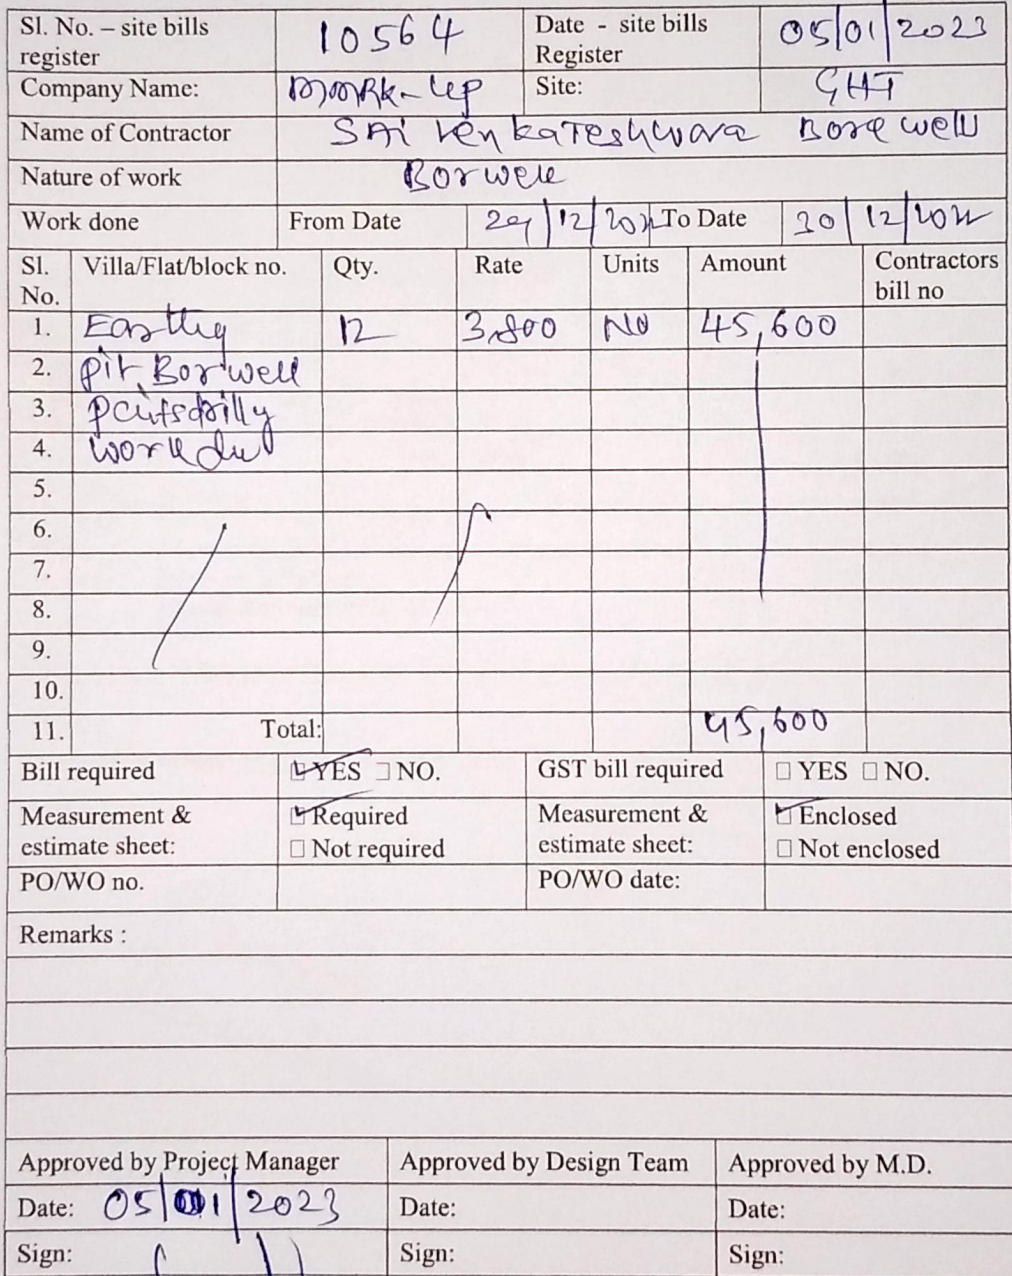 Sl. No. – site bills register 10564 Date - site bills Register 05/01/2023
Company Name: Site: GHT
Name of Contractor SAi VenkaTeshwara Bore well
Nature of work Borwell
Work done From Date 29/12/2022 To Date 30/12/2022
Sl. No. Villa/Flat/block no. Qty. Rate Units Amount Contractors bill no
1. Earthg 12 3,800 NO 45,600
2. pit Borwell
3.
4. work
5.
6.
7.
8.
9.
10.
11. Total: 45,600
Bill required ☑ YES ☐ NO. GST bill required ☐ YES ☐ NO.
Measurement & estimate sheet: ☑ Required ☐ Not required Measurement & estimate sheet: ☑ Enclosed ☐ Not enclosed
PO/WO no. PO/WO date:
Remarks :
Approved by Project Manager Approved by Design Team Approved by M.D.
Date: 05/01/2023 Date: Date:
Sign: Sign: Sign: